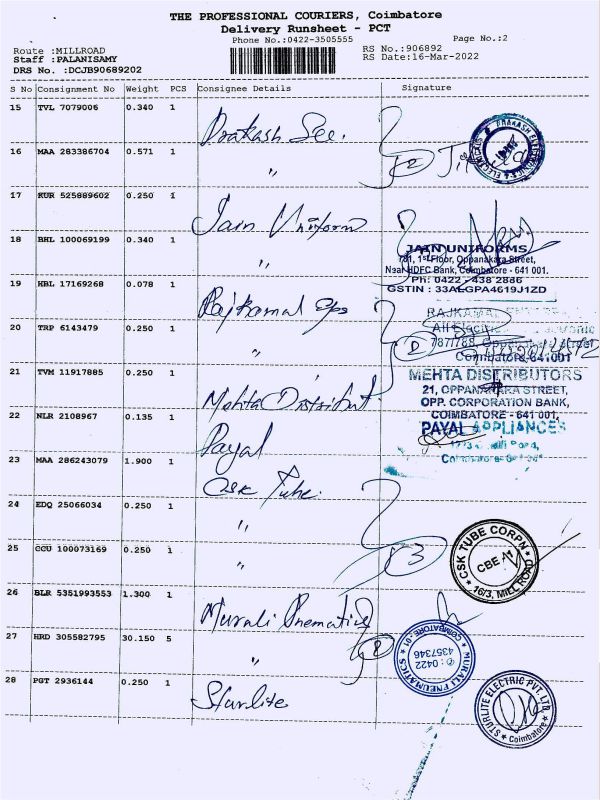 THE PROFESSIONAL COURIERS, Coimbatore
Delivery Runsheet - PCT
Phone No.:0422-3505555
Page No.:2
Route :MILLROAD
RS No.:906892
Staff :PALANISAMY
RS Date:16-Mar-2022
DRS No. :DCJB90689202
S No Consignment No Weight PCS Consignee Details Signature
15 TVL 7079006 0.340 1 Prakash Ele.
16 MAA 283386704 0.571 1 〃 2
PRAKASH ELECTRICALS
17 KUR 525889602 0.250 1 Jain Uniform
18 BHL 100069199 0.340 1 〃
JAIN UNIFORMS
781, 1st Floor, Oppanakara Street,
Near HDFC Bank, Coimbatore - 641 001.
Ph: 0422 - 438 2886
GSTIN : 33AEGPA4619J1ZD
19 HBL 17169268 0.078 1 Rajkamal
20 TRP 6143479 0.250 1 〃 2
RAJKAMAL
787/788, Oppanakara Street
Coimbatore-641001
21 TVM 11917885 0.250 1 Mehta Distribut
MEHTA DISTRIBUTORS
21, OPPANAKARA STREET,
OPP. CORPORATION BANK,
COIMBATORE - 641 001.
22 NLR 2108967 0.135 1 Payal
PAYAL APPLIANCES
23 MAA 286243079 1.900 1 CSK Tube.
24 EDQ 25066034 0.250 1 〃
25 CCU 100073169 0.250 1 〃 3
CSK TUBE CORPN
CBE
16/3, MILL ROAD
26 BLR 5351993553 1.300 1 Murali Pnematics
27 HRD 305582795 30.150 5 〃
MURALI PNEUMATICS
COIMBATORE
✆ : 0422
4357346
28 PGT 2936144 0.250 1 Sturlite
STURLITE ELECTRIC PVT. LTD.
Coimbatore